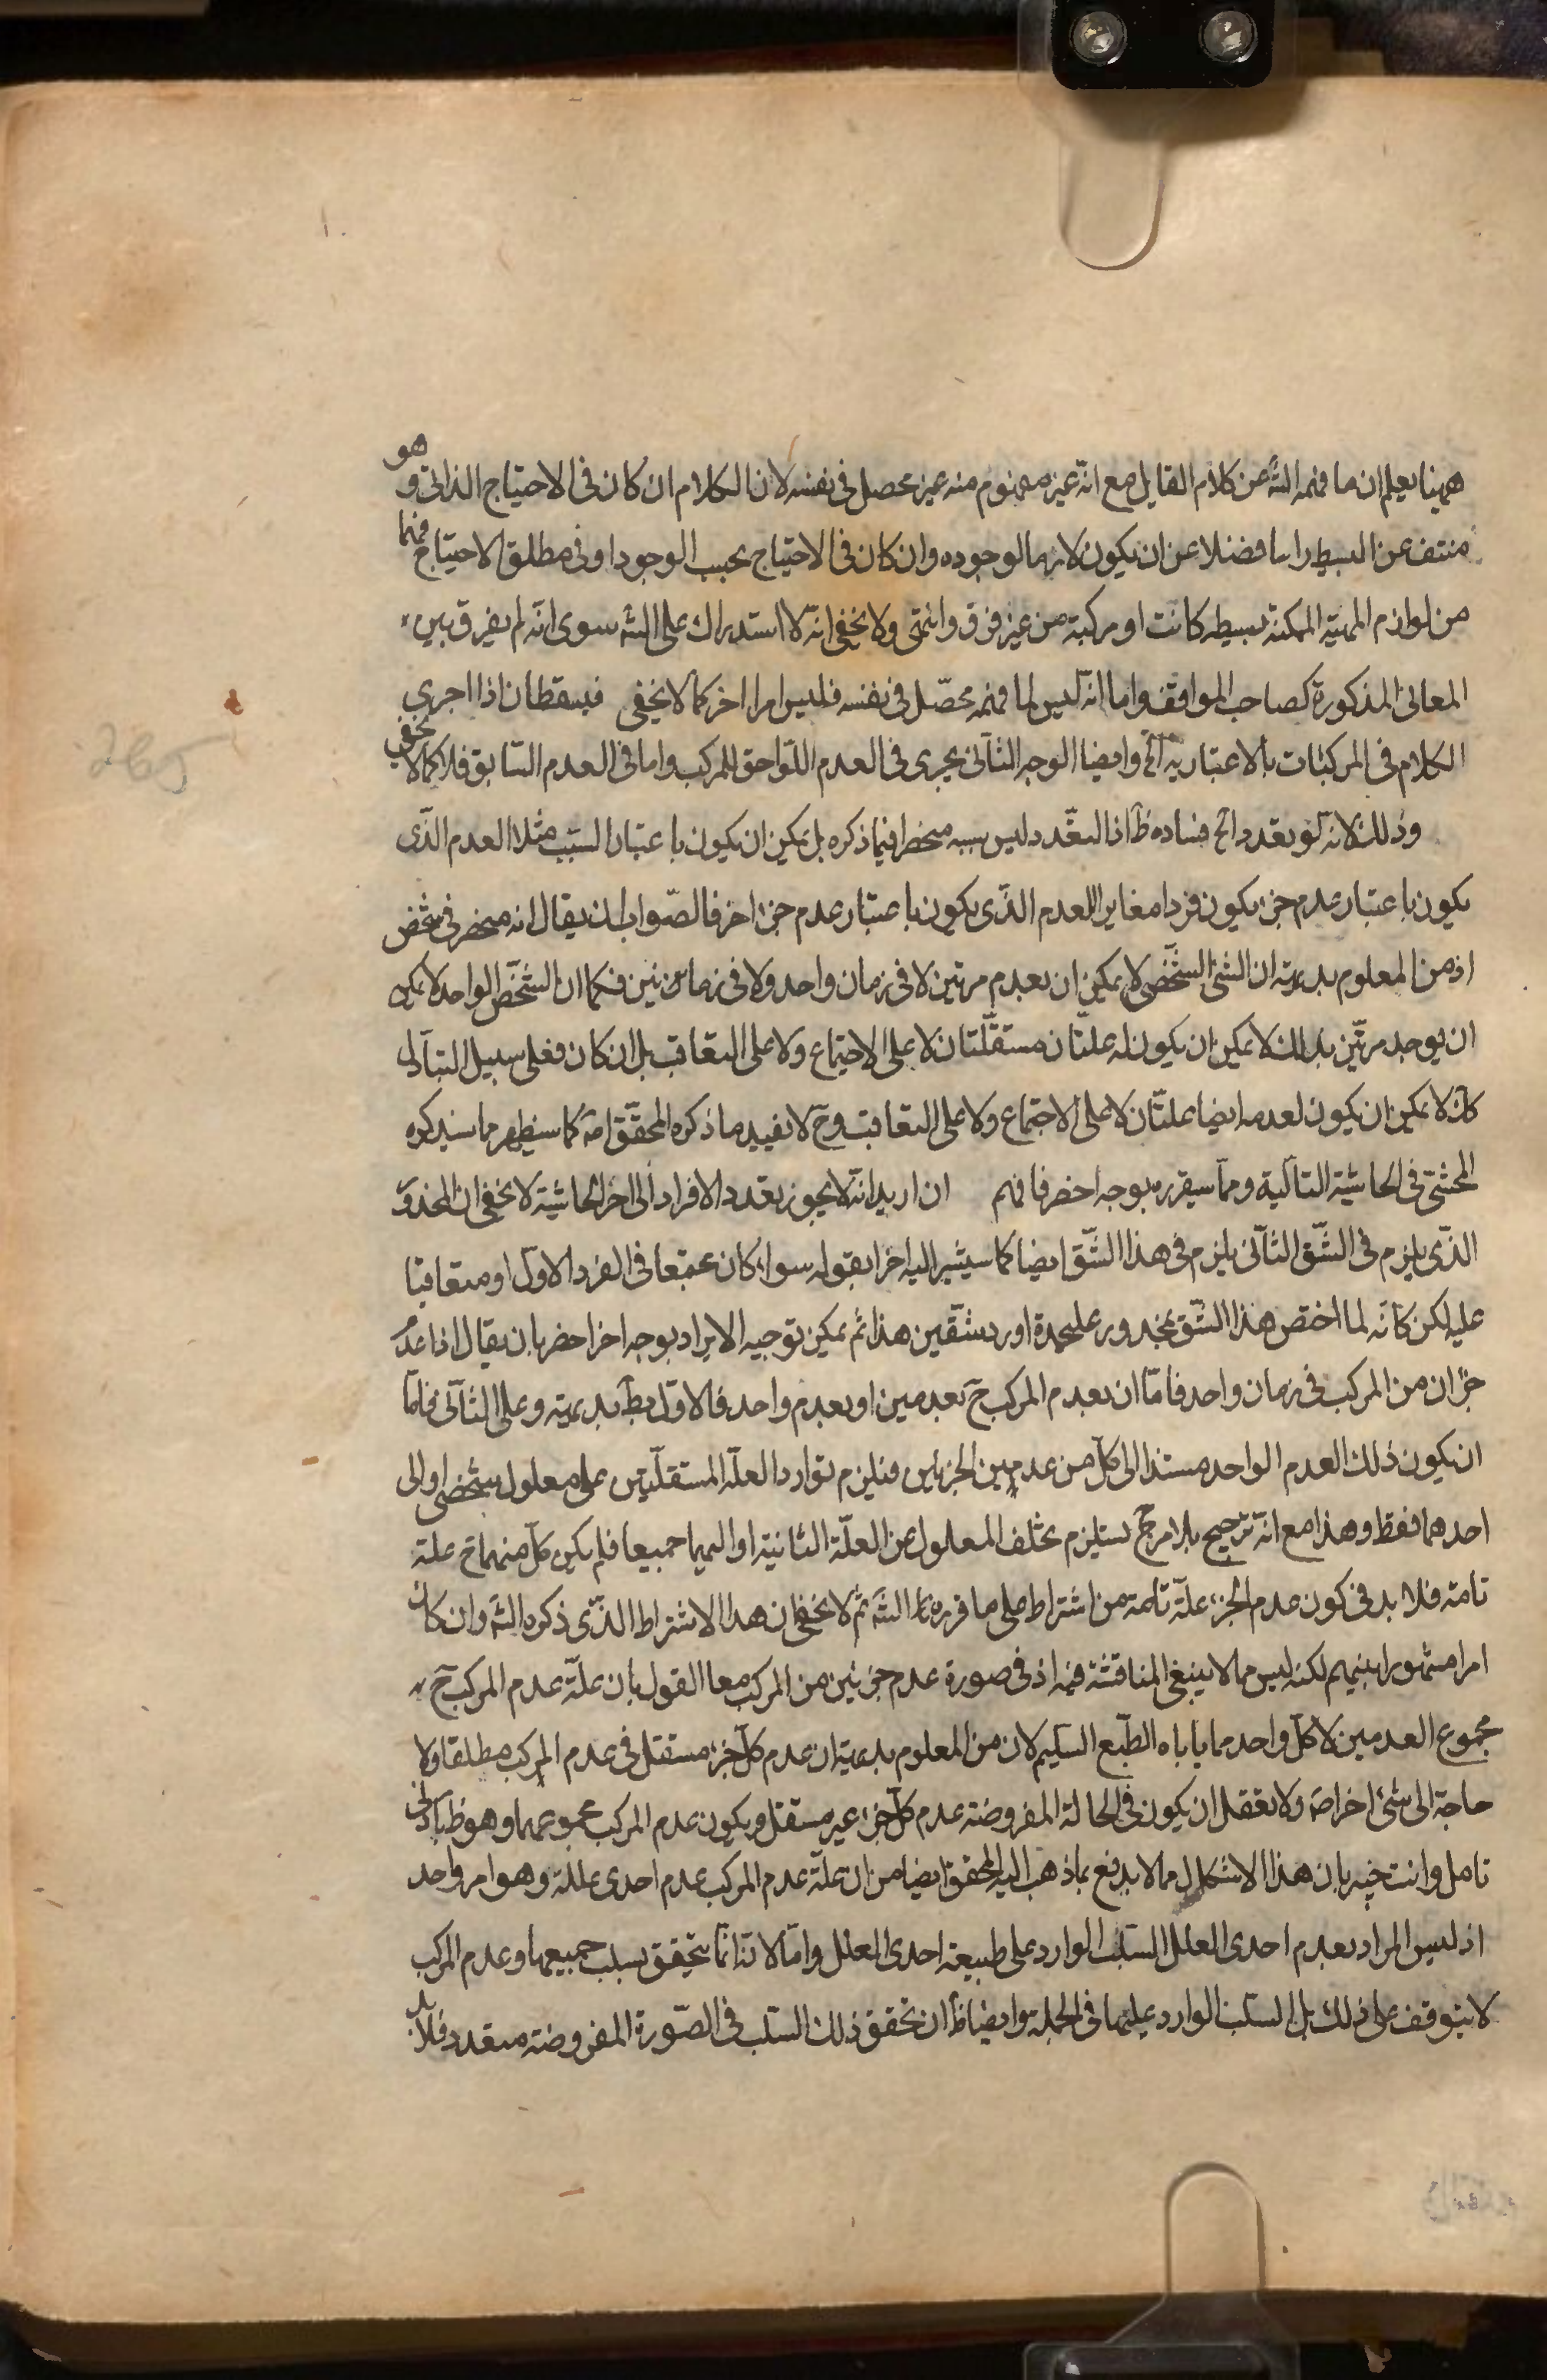 ههنا يعلم ان ما فهمه الشه من كلام القايل مع انه غير مفهوم منه غير محصل في نفسه لان الكلام ان كان في الاحتياج الذاتي وهو
منتف عن البسيط راسا فضلا عن ان يكون لازما لوجوده وان كان في الاحتياج بحسب الوجود او في مطلق الاحتياج فهما
من لوازم المهية الممكنة بسيطه كانت او مركبة من غير فرق وانتهى ولا يخفى انه لا استدراك على الشه سوى انه لم يفرق بين
المعاني المذكورة كصاحب المواقف واما انه ليس لما فهمه محصّل في نفسه فليس امرا اخر كما لا يخفى فيسقطان اذا اجرى
الكلام في المركبات بالاعتبارية آه وايضا الوجه الثاني يجرى في العدم اللاحق للمركب واما في العدم السابق فلا كما لا يخفى
وذلك لانه لو تعدد اتح فساده ظ اذ التعدد ليس سببه منحصرا فيما ذكره بل يمكن ان يكون باعتبار السبب مثلا العدم الذى
يكون باعتبار عدم جزء يكون فردا مغايرا للعدم الذى يكون باعتبار عدم جزء اخر فالصواب ان يقال انه منحصر في شخص
اذ من المعلوم بديهة ان الشئ الشخصى لا يمكن ان يعدم مرتين لا في زمان واحد ولا في زمانين فكما ان الشخص الواحد لا يمكن
ان يوجد مرتين بذلك لا يمكن ان يكون له علتان مستقلتان لا على الاجتماع ولا على التعاقب بل ان كان فعلى سبيل التبادل
كك لا يمكن ان يكون لعدمه ايضا علتان لا على الاجتماع ولا على التعاقب وح لا يفيد ما ذكره المحقق اصلا كما سيظهر مما سيذكره
المحشى في الحاشية التالية ومما سيقرره بوجه اخصر فافهم ان اريد انه لا يجوز تعدد الافراد الى اخر الحاشية لا يخفى ان المحذور
الذى يلزم في الشق الثاني يلزم في هذا الشق ايضا كما سيشير اليه اخرا بقوله سواء كان مجتمعا في الفرد الاول او متعاقبا
عليه لكن كانه لما اختص هذا الشق بمحذور عليحدة اورد شقين هذا ثم يمكن توجيه الايراد بوجه اخر اخصر بان يقال اذا عدم
جزءان من المركب في زمان واحد فاما ان يعدم المركب ح بعدمين او بعدم واحد فالاول بط بديهة وعلى الثاني فاما
ان يكون ذلك العدم الواحد مستندا الى كل من عدمين الجزئين فيلزم توارد العلة المستقلتين على معلول شخصى او الى
احدهما فقط وهذا مع انه ترجيح بلا مرجح يستلزم تخلف المعلول عن العلة الثانية او اليهما جميعا فلم يكن كل منهما ح علة
تامة فلا بد في كون عدم الجزء علة تامة من اشتراط على ما قرره الشه ثم لا يخفى ان هذا الاشتراط الذى ذكره الشه وان كان
امرا مشهورا بينهم لكنه ليس مما لا ينبغى المناقشة فيه اذ في صورة عدم جزئين من المركب معا القول بان علة عدم المركب ح
مجموع العدمين لا كل واحد مما ياباه الطبع السليم لان من المعلوم بديهة ان عدم كل جزء مستقل في عدم المركب مطلقا ولا
حاجة الى شئ اخر اصلا ولا يعقل ان يكون في الحالة المفروضة عدم كل جزء غير مستقل ويكون عدم المركب بمجموعهما وهو ظ بادنى
تامل وانت خبير بان هذا الاشكال مما لا يدفع بما ذهب اليه المحقق ايضا من ان علة عدم المركب عدم احدى علله وهو امر واحد
اذ ليس المراد بعدم احدى العلل السلب الوارد على طبيعة احدى العلل والا لا تنا انما يتحقق بسلب جميعها وعدم المركب
لا يتوقف على ذلك بل السلب الوارد عليها في الجملة وايضا ظ ان تحقق ذلك السلب في الصورة المفروضة متعدد فلا بد